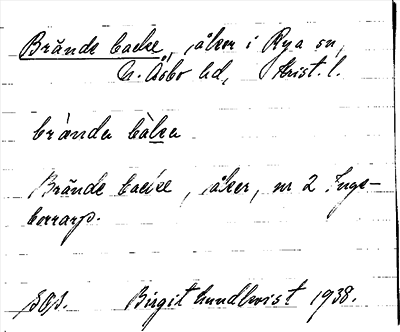 Brände backe, åker i Rya sn,
N. Åsbo hd, Krist. l.
brànda bàka
Brände backe, åker, nr 2 Ings-
borrarp.
Birgit Lundkvist 1938.